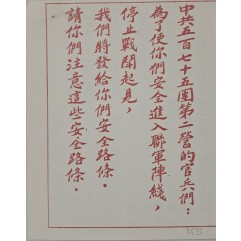 中共五一百七十五團第二營的官兵們：
為了使你們安全進入聯軍陣綫，
停止戰鬪起見，
我們將發給你們安全路條．
請你們注意這些安全路條．